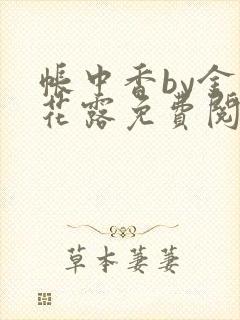 帐中香by金
花露免費閱
草本萋萋